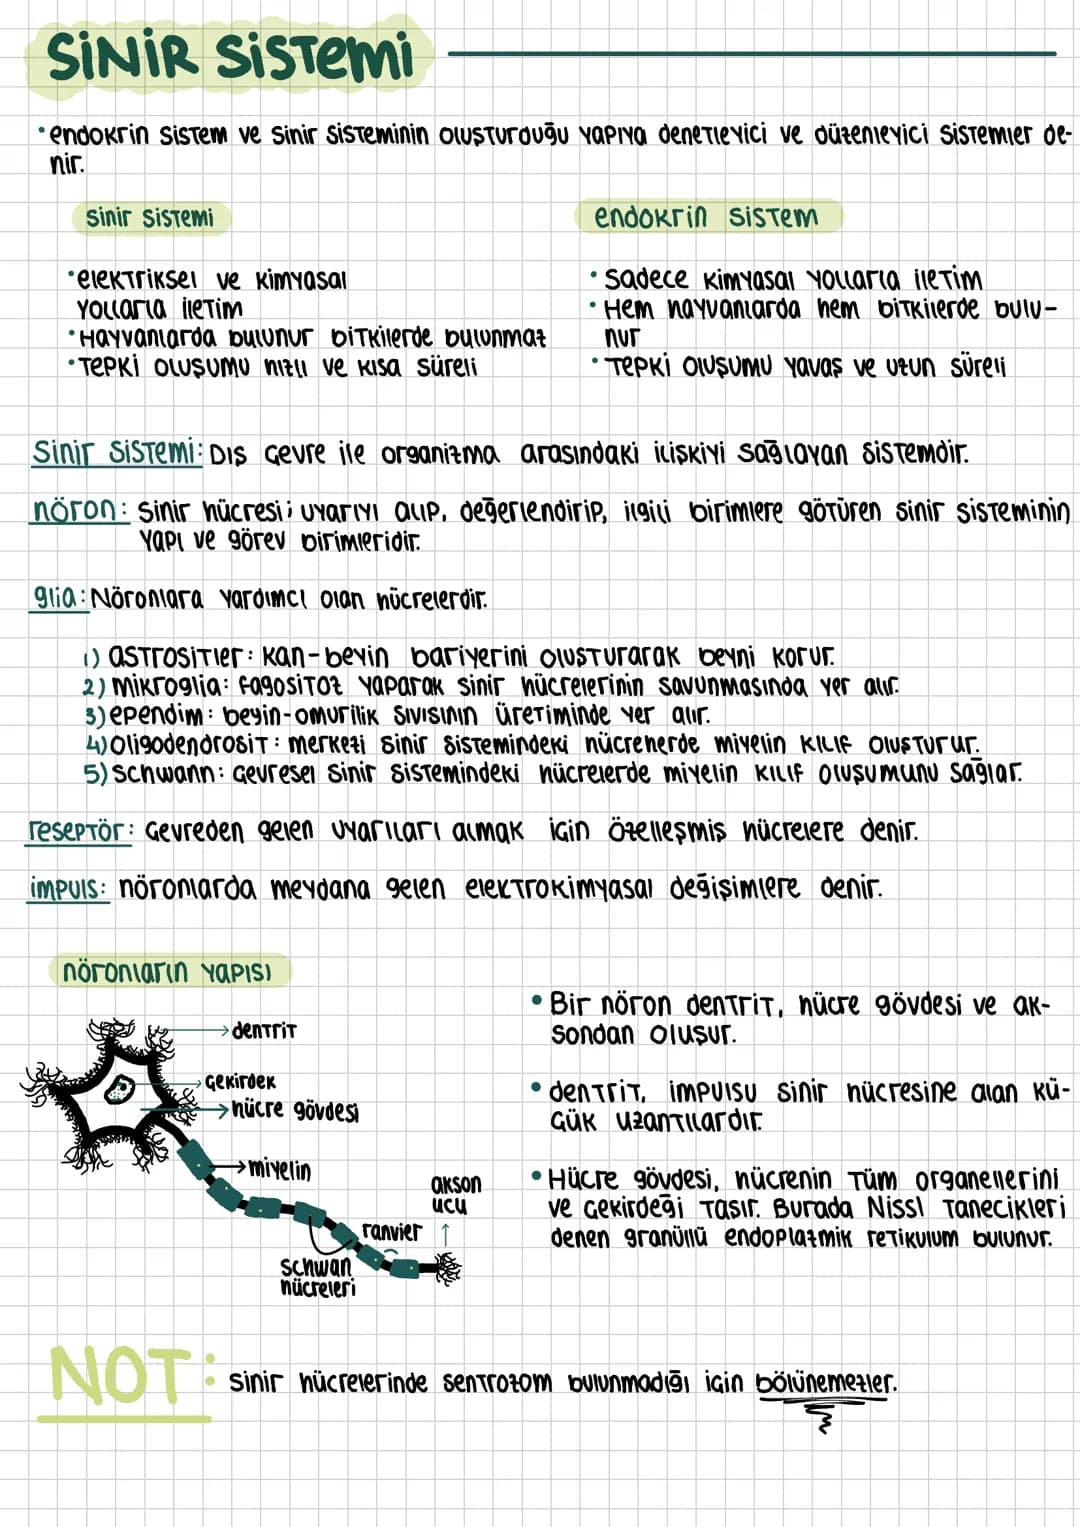 SİNİR SİSTEMİ
• endokrin sistem ve sinir sisteminin oluşturduğu yapıya denetleyici ve düzenleyici sistemler de-
nir.
sinir sistemi
• elektriksel ve kimyasal
yollarla iletim
• Hayvanlarda bulunur bitkilerde bulunmaz
• Tepki oluşumu hızlı ve kısa süreli
endokrin sistem
• Sadece kimyasal yollarla iletim
• Hem hayvanlarda hem bitkilerde bulu-
nur
• Tepki oluşumu yavaş ve uzun süreli
Sinir Sistemi: Dış çevre ile organizma arasındaki ilişkiyi sağlayan sistemdir.
nöron: Sinir hücresi; uyarıyı alıp, değerlendirip, ilgili birimlere götüren sinir sisteminin
yapı ve görev birimleridir.
glia: Nöronlara yardımcı olan hücrelerdir.
1) astrositler: kan-beyin bariyerini oluşturarak beyni korur.
2) mikroglia: fagositoz yaparak sinir hücrelerinin savunmasında yer alır.
3) ependim: beyin-omurilik sıvısının üretiminde yer alır.
4) oligodendrosit: merkezi sinir sistemindeki hücrelerde miyelin kılıf oluşturur.
5) schwann: çevresel sinir sistemindeki hücrelerde miyelin kılıf oluşumunu sağlar.
reseptör: Çevreden gelen uyarıları almak için özelleşmiş hücrelere denir.
impuls: nöronlarda meydana gelen elektrokimyasal değişimlere denir.
nöronların yapısı
dentrit
çekirdek
hücre gövdesi
miyelin
akson
ucu
ranvier
schwan
hücreleri
• Bir nöron dentrit, hücre gövdesi ve ak-
sondan oluşur.
• dentrit, impulsu sinir hücresine alan kü-
çük uzantılardır.
• Hücre gövdesi, hücrenin tüm organellerini
ve çekirdeği taşır. Burada Nissl tanecikleri
denen granüllü endoplazmik retikulum bulunur.
NOT: sinir hücrelerinde sentrozom bulunmadığı için bölünemezler.